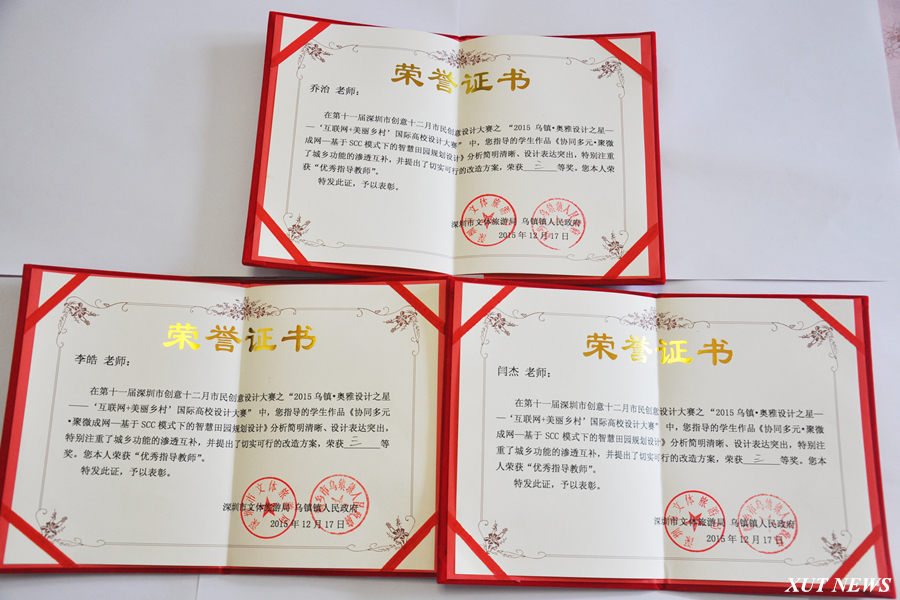 荣誉证书
乔治 老师：
在第十一届深圳市创意十二月市民创意设计大赛之 “2015 乌镇•奥雅设计之星—
—‘互联网+美丽乡村’国际高校设计大赛” 中，您指导的学生作品《协同多元•聚微
成网—基于 SCC 模式下的智慧田园规划设计》分析简明清晰、设计表达突出，特别注重
了城乡功能的渗透互补，并提出了切实可行的改造方案，荣获 三 等奖。您本人荣
获“优秀指导教师”。
特发此证，予以表彰。
深圳市文体旅游局 乌镇镇人民政府
2015 年 12 月 17 日
荣誉证书
李皓 老师：
在第十一届深圳市创意十二月市民创意设计大赛之 “2015 乌镇•奥雅设计之星
——‘互联网+美丽乡村’国际高校设计大赛” 中，您指导的学生作品《协同多元
•聚微成网—基于 SCC 模式下的智慧田园规划设计》分析简明清晰、设计表达突出，
特别注重了城乡功能的渗透互补，并提出了切实可行的改造方案，荣获 三 等
奖。您本人荣获“优秀指导教师”。
特发此证，予以表彰。
深圳市文体旅游局 乌镇镇人民政府
2015 年 12 月 17 日
荣誉证书
闫杰 老师：
在第十一届深圳市创意十二月市民创意设计大赛之 “2015 乌镇•奥雅设计之星—
—‘互联网+美丽乡村’国际高校设计大赛” 中，您指导的学生作品《协同多元•聚微
成网—基于 SCC 模式下的智慧田园规划设计》分析简明清晰、设计表达突出，特别注
重了城乡功能的渗透互补，并提出了切实可行的改造方案，荣获 三 等奖。您本
人荣获“优秀指导教师”。
特发此证，予以表彰。
深圳市文体旅游局 乌镇镇人民政府
2015 年 12 月 17 日
XUT NEWS